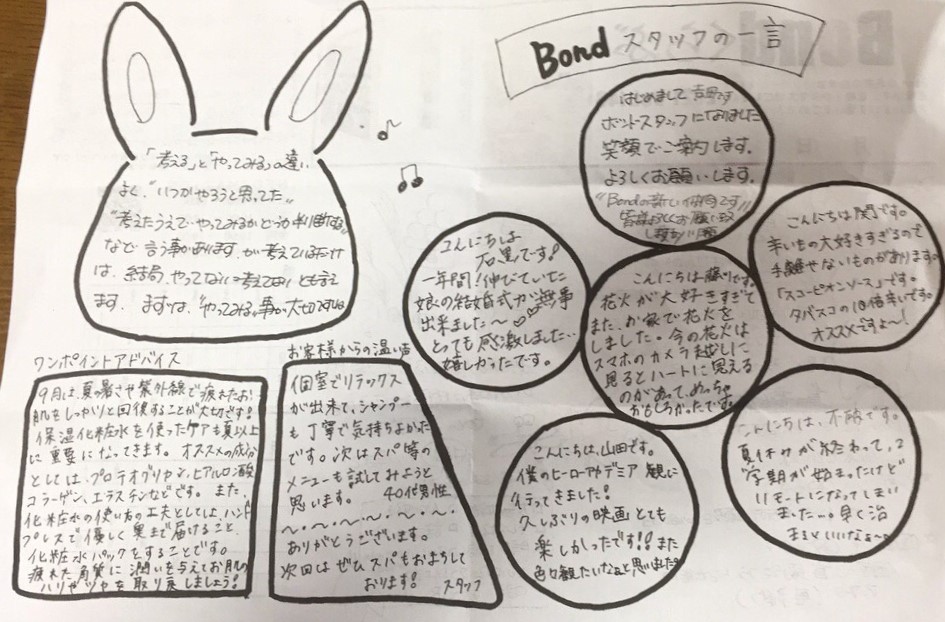 Bond スタッフの一言
「考える」と「やってみる」の違い
よく、"いつかやろうと思ってた"
"考えたうえでやってみるかどうか判断する"
など言う事があります。が考えているだけ
は、結局、やってない=考えてない とも言え
ます。まずは、"やってみる"事が大切ですね
はじめまして 吉田です
ボンドスタッフになりました
笑顔でご案内します。
よろしくお願いします。
"Bondの新しい仲間です"
こんにちは関です。
辛いもの大好きすぎるので
手離せないものがあります。
「スコーピオンソース」です。
タバスコの10倍辛いです。
オススメですよ〜!
こんにちは
石黒です!
一年間!伸びていた
娘の結婚式が無事
出来ました〜♡♡
とっても感激しました…
嬉しかったです。
こんにちは
花火が大好きすぎて
また、お家で花火を
しました。今の花火は
スマホのカメラ越しに
見るとハートに見える
のがあって、めっちゃ
おもしろかったです。
こんにちは、山田です。
僕のヒーローアカデミア 観に
行ってきました!
久しぶりの映画とても
楽しかったです!!また
色々観たいなぁと思いました!
こんにちは、です。
夏休みが終わって、2
学期が始まったけど
リモートになってしまい
ました…。早く治
まるといいなぁ〜
ワンポイントアドバイス
9月は、夏の暑さや紫外線で疲れたお
肌をしっかりと回復することが大切です!
保湿化粧水を使ったケアも夏以上
に重要になってきます。オススメの成分
としては、プロテオグリカン、ヒアルロン酸
コラーゲン、エラスチンなどです。また
化粧水の使い方の工夫としては、ハンド
プレスで優しく奥まで届けること
化粧水パックをすることです。
疲れた角質に潤いを与えてお肌の
ハリやツヤを取り戻しましょう!
お客様からの温い声
個室でリラックス
が出来て、シャンプー
も丁寧で気持ちよかった
です。次はスパ等の
メニューも試してみようと
思います。 40代男性
〜・〜・〜・〜・〜・〜
ありがとうございます。
次回はぜひスパもおまちして
おります! スタッフ